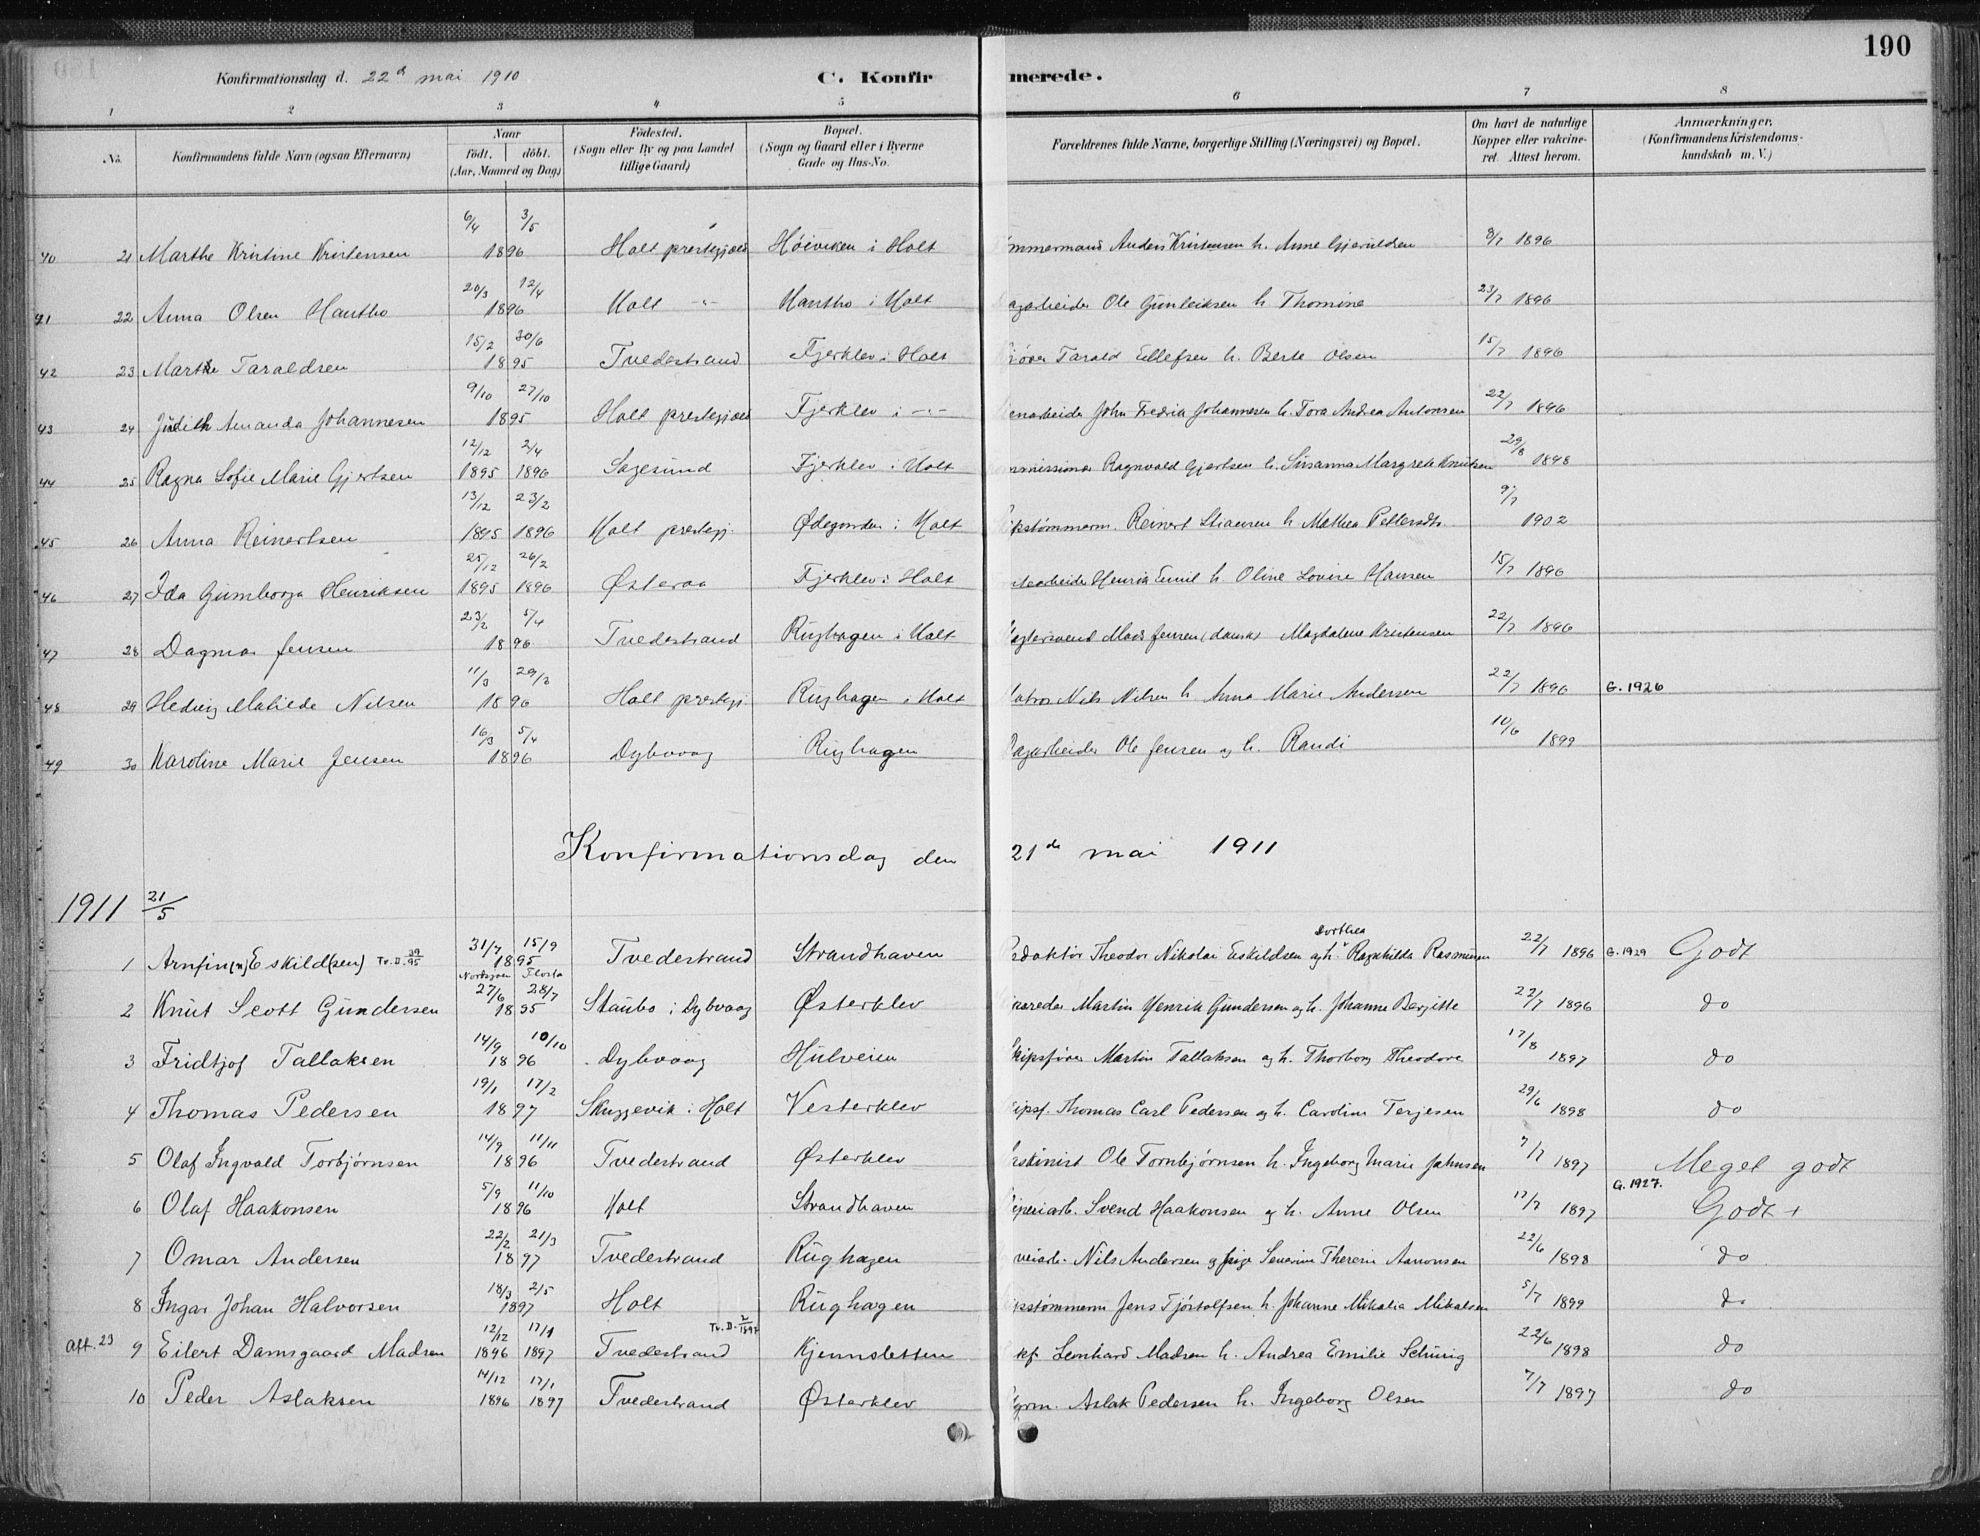 190
Konfirmationsdag d. 22d mai 1910 C. Konfirmerede.
1 2 3 4 5 6 7 8
No. Konfirmandens fulde Navn (ogsaa Efternavn) Naar födt. döbt. (Aar, Maaned og Dag) Födested. (Sogn eller By og paa Landet tillige Gaard) Bopæl. (Sogn og Gaard eller i Byerne Gade og Hus-No. Forældrenes fulde Navne, borgerlige Stilling (Næringsvei) og Bopæl. Om havt de naturlige Kopper eller vakcineret. Attest herom. Anmærkninger. (Konfirmandens Kristendomskundskab m. V.)
40 21 Marthe Kristine Kristensen 6/4 3/5 1896 Holt prestegjæld Höiviken i Holt mmermand Anders Kristensen h. Anne Gjeruldsen 8/7 1896
41 22 Anna Olsen Hantho 20/3 12/4 1896 Holt -"- Hantho i Holt agarbeider Ole Gunleiksen h. Thomine 23/7 1896
42 23 Marthe Taraldsen 15/2 30/6 1895 Tvedestrand Fjerklev i Holt Tarald Ellefsen h. Berte Olsen 15/7 1896
43 24 Judith Amanda Johannesen 9/10 27/10 1895 Holt prestegjæld Fjerklev i -"- enarbeider John Fredrik Johannesen h. Tora Andrea Antonsen 22/7 1896
44 25 Ragna Sofie Marie Gjertsen 12/12 2/4 1895 1896 Sagesund Fjerklev i Holt ommissionær Ragnvald Gjertsen h. Susanna Margrete Knutsen 29/8 1898
45 26 Anna Reinertsen 13/12 23/2 1895 1896 Holt prestegj. Ødegaarden i Holt ipstømmerm. Reinert h. Mathea Pettersdtr. 9/7 1902
46 27 Ida Gumborga Henriksen 25/12 26/2 1895 1896 Østeraa Fjerklev i Holt Henrik Emil h. Oline Lovise Hansen 15/7 1896
47 28 Dagmar Jensen 23/2 5/4 1896 Tvedestrand Rughagen i Holt agersvend Mads Jensen (dansk) Magdalene Kristensen 22/7 1896
48 29 Hedvig Matilde Nilsen 11/3 29/3 1896 Holt prestegj. Rughagen i Holt atros Nils Nilsen h. Anna Marie Andersen 22/7 1896 G. 1926
49 30 Karoline Marie Jensen 16/3 5/4 1896 Dybvaag Rughagen agarbeider Ole Jensen og h. Randi 10/6 1899
Konfirmationsdag den 21de mai 1911
1911 21/5
1 Arnfin(n) Eskild(sen) Tv.D. 39/95 31/7 15/9 1895 Tvedestrand Strandhaven edaktør Theodor Nikolai Eskildsen og h. Dorthea Ragnhilda Rasmussen 22/7 1896 G. 1929 Godt
2 Knut Scott Gundersen 27/6 28/7 1895 Staubo i Dybvaag Østerklev Martin Henrik Gundersen og h. Johanne Bergitte 22/7 1896 do
3 Fridtjof Tallaksen 14/9 10/10 1896 Dybvaag Hulveien kipsfører Martin Tallaksen og h. Thorborg Theodore 17/8 1897 do
4 Thomas Pedersen 19/1 17/2 1897 Skuggevik i Holt Vesterklev kipsf. Thomas Carl Pedersen og h. Caroline Terjesen 29/6 1898 do
5 Olaf Ingvald Torbjørnsen 14/9 11/11 1896 Tvedestrand Østerklev askinist Ole Tornbjørnsen h. Ingeborg Marie Jahnsen 7/7 1897 Meget godt
6 Olaf Haakonsen 5/9 11/10 1896 Holt Strandhaven iperiarb. Svend Haakonsen og h. Anne Olsen 17/7 1897 G. 1927. Godt +
7 Omar Andersen 22/2 21/3 1897 Tvedestrand Rughagen veiarb. Nils Andersen og pige Severine Therese Aanonsen 22/6 1898 do
8 Ingar Johan Halvorsen 18/3 2/5 1897 Holt Rughagen ipstømmerm Jens Tjøstolfsen h. Johanne Mikalia Mikalsen 5/7 1899 do
Aft. 23 9 Eilert Damsgaard Madsen 12/12 17/1 1896 1897 Tvedestrand Tv.D. 2/1897 Kjennsletten kf. Leonhard Madsen h. Andrea Emilie Schurig 22/6 1898 do
10 Peder Aslaksen 14/12 17/1 1896 1897 Tvedestrand Østerklev Aslak Pedersen h. Ingeborg Olsen 7/7 1897 do